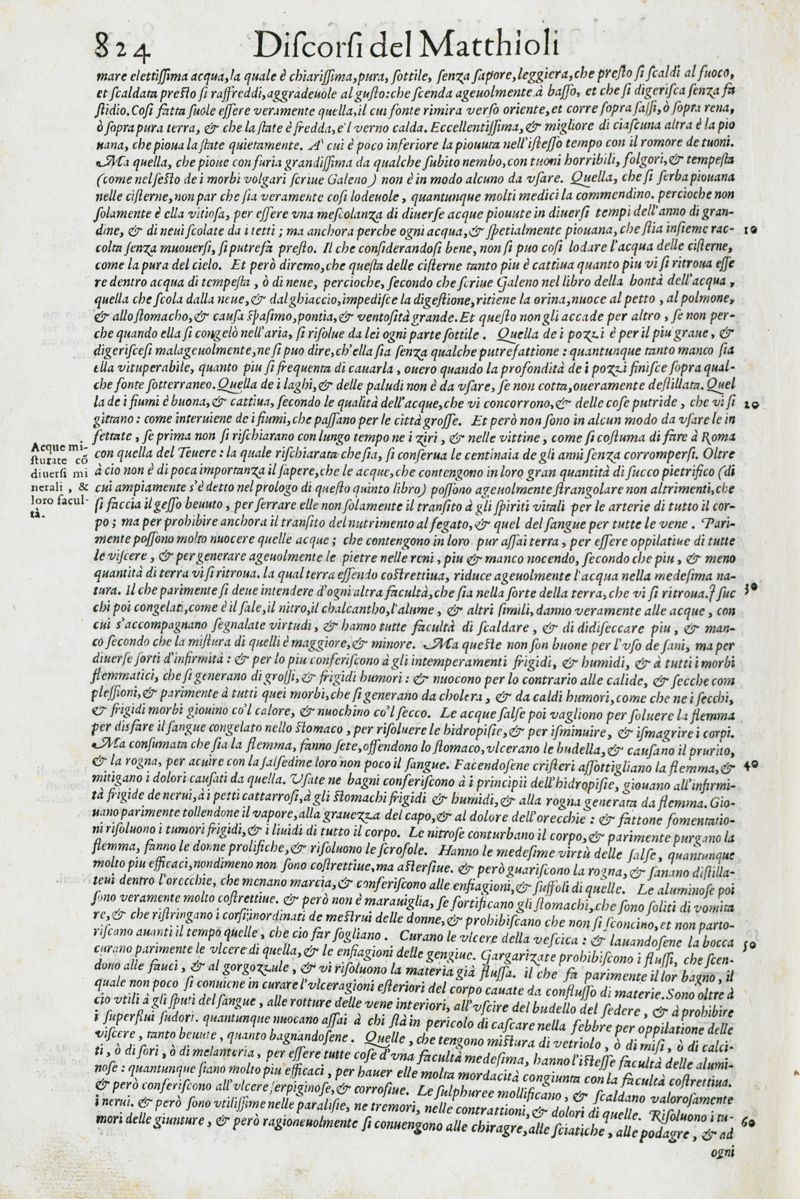 824 Diſcorſi del Matthioli
mare elettiſſima acqua, la quale è chiariſſima, pura, ſottile, ſenza ſapore, leggiera, che preſto ſi ſcaldi al fuoco,
et ſcaldata preſto ſi raffreddi, aggradeuole al guſto: che ſcenda ageuolmente à baſſo, et che ſi digeriſca ſenza fa
ſtidio. Coſi fatta ſuole eſſere veramente quella, il cui fonte rimira verſo oriente, et corre ſopra ſaſſi, ò ſopra rena,
ò ſopra pura terra, & che la ſtate è fredda, e'l verno calda. Eccellentiſſima, & migliore di ciaſcuna altra è la pio
uana, che pioua la ſtate quietamente. A' cui è poco inferiore la piouuta nell'iſteſſo tempo con il romore de tuoni.
Ma quella, che pioue con furia grandiſſima da qualche ſubito nembo, con tuoni horribili, folgori, & tempeſta
(come nel ſeſto de i morbi volgari ſcriue Galeno) non è in modo alcuno da vſare. Quella, che ſi ſerba piouana
nelle ciſterne, non par che ſia veramente coſi lodeuole, quantunque molti medici la commendino. percioche non
ſolamente è ella vitioſa, per eſſere vna meſcolanza di diuerſe acque piouute in diuerſi tempi dell'anno di gran-
dine, & di neui ſcolate da i tetti; ma anchora perche ogni acqua, & ſpetialmente piouana, che ſtia inſieme rac- 10
colta ſenza muouerſi, ſi putrefà preſto. Il che conſiderandoſi bene, non ſi puo coſi lodare l'acqua delle ciſterne,
come la pura del cielo. Et però diremo, che queſta delle ciſterne tanto piu è cattiua quanto piu vi ſi ritroua eſſe
re dentro acqua di tempeſta, ò di neue, percioche, ſecondo che ſcriue Galeno nel libro della bontà dell'acqua,
quella che ſcola dalla neue, & dal ghiaccio, impediſce la digeſtione, ritiene la orina, nuoce al petto, al polmone,
& allo ſtomacho, & cauſa ſpaſimo, pontia, & ventoſità grande. Et queſto non gli accade per altro, ſe non per-
che quando ella ſi congelò nell'aria, ſi riſolue da lei ogni parte ſottile. Quella de i pozzi è per il piu graue, &
digeriſceſi malageuolmente, ne ſi puo dire, ch'ella ſia ſenza qualche putrefattione: quantunque tanto manco ſia
ella vituperabile, quanto piu ſi frequenta di cauarla, ouero quando la profondità de i pozzi finiſce ſopra qual-
che fonte ſotterraneo. Quella de i laghi, & delle paludi non è da vſare, ſe non cotta, oueramente deſtillata. Quel
la de i fiumi è buona, & cattiua, ſecondo le qualità dell'acque, che vi concorrono, & delle coſe putride, che vi ſi 20
gittano: come interuiene de i fiumi, che paſſano per le città groſſe. Et però non ſono in alcun modo da vſare le in
fettate, ſe prima non ſi riſchiarano con lungo tempo ne i ziri, & nelle vittine, come ſi coſtuma di fare à Roma
con quella del Teuere: la quale riſchiarata che ſia, ſi conſerua le centinaia de gli anni ſenza corromperſi. Oltre
Acque mi-
ſturate cõ
diuerſi mi
nerali, &
loro facul-
tà.
à cio non è di poca importanza il ſapere, che le acque, che contengono in loro gran quantità di ſucco pietrifico (di
cui ampiamente s'è detto nel prologo di queſto quinto libro) poſſono ageuolmente ſtrangolare non altrimenti, che
ſi faccia il geſſo beuuto, per ſerrare elle non ſolamente il tranſito à gli ſpiriti vitali per le arterie di tutto il cor-
po; ma per prohibire anchora il tranſito del nutrimento al fegato, & quel del ſangue per tutte le vene. Pari-
mente poſſono molto nuocere quelle acque; che contengono in loro pur aſſai terra, per eſſere oppilatiue di tutte
le viſcere, & per generare ageuolmente le pietre nelle reni, piu & manco nocendo, ſecondo che piu, & meno
quantità di terra vi ſi ritroua. la qual terra eſſendo coſtrettiua, riduce ageuolmente l'acqua nella medeſima na-
tura. Il che parimente ſi deue intendere d'ogni altra facultà, che ſia nella ſorte della terra, che vi ſi ritroua. I ſuc 30
chi poi congelati, come è il ſale, il nitro, il chalcantho, l'alume, & altri ſimili, danno veramente alle acque, con
cui s'accompagnano ſegnalate virtudi, & hanno tutte facultà di ſcaldare, & di diſeccare piu, & man-
co ſecondo che la miſtura di quelli è maggiore, & minore. Ma queſte non ſon buone per l'vſo de ſani, ma per
diuerſe ſorti d'infirmità: & per lo piu conferiſcono à gli intemperamenti frigidi, & humidi, & à tutti i morbi
flemmatici, che ſi generano di groſſi, & frigidi humori: & nuocono per lo contrario alle calide, & ſecche com
pleſſioni, & parimente à tutti quei morbi, che ſi generano da cholera, & da caldi humori, come che ne i ſecchi,
& frigidi morbi giouino co'l calore, & nuochino co'l ſecco. Le acque ſalſe poi vagliono per ſoluere la flemma
per disfare il ſangue congelato nello ſtomaco, per riſoluere le hidropiſie, & per iſminuire, & iſmagrire i corpi.
Ma conſumata che ſia la flemma, fanno ſete, offendono lo ſtomaco, vlcerano le budella, & cauſano il prurito,
& la rogna, per acuire con la ſalſedine loro non poco il ſangue. Facendoſene criſteri aſſottigliano la flemma, & 40
mitigano i dolori cauſati da quella. Vſate ne bagni conferiſcono à i principii dell'hidropiſie, giouano all'infirmi-
tà frigide de nerui, à i petti cattarroſi, à gli ſtomachi frigidi & humidi, & alla rogna generata da flemma. Gio-
uano parimente tollendone il vapore, alla grauezza del capo, & al dolore dell'orecchie: & fattone fomentatio-
ni riſoluono i tumori frigidi, & i liuidi di tutto il corpo. Le nitroſe conturbano il corpo, & parimente purgano la
flemma, fanno le donne prolifiche, & riſoluono le ſcrofole. Hanno le medeſime virtù delle ſalſe, quantunque
molto piu efficaci, nondimeno non ſono coſtrettiue, ma aſterſiue. & però guariſcono la rogna, & ſanano diſtilla-
teui dentro l'orecchie, che menano marcia, & conferiſcono alle enfiagioni, & ſuffoli di quelle. Le aluminoſe poi
ſono veramente molto coſtrettiue. & però non è marauiglia, ſe fortificano gli ſtomachi, che ſono ſoliti di vomita
re, & che riſtringano i corſi inordinati de meſtrui delle donne, & prohibiſcano che non ſi ſconcino, et non parto-
riſcano auanti il tempo quelle, che cio far ſogliano. Curano le vlcere della veſcica: & lauandoſene la bocca 50
curano parimente le vlcere di quella, & le enfiagioni delle gengiue. Gargarizate prohibiſcono i fluſſi, che ſcen-
dono alle fauci, & al gorgozzule, & vi riſoluono la materia già fluſſa. il che fa parimente il lor bagno, il
quale non poco ſi conuiene in curare l'vlceragioni eſteriori del corpo cauate da confluſſo di materie. Sono oltre à
cio vtili à gli ſputi del ſangue, alle rotture delle vene interiori, all'vſcire del budello del ſedere, & à prohibire
i ſuperflui ſudori. quantunque nuocano aſſai à chi ſtà in pericolo di caſcare nella febbre per oppilatione delle
viſcere, tanto beuute, quanto bagnandoſene. Quelle, che tengono miſtura di vetriolo, ò di miſi, ò di calci-
ti, ò di ſori, ò di melanteria, per eſſere tutte coſe d'vna facultà medeſima, hanno l'iſteſſe facultà delle alumi-
noſe: quantunque ſiano molto piu efficaci, per hauer elle molta mordacità congiunta con la facultà coſtrettiua.
& però conferiſcono all'vlcere ſerpiginoſe, & corroſiue. Le ſulphuree mollificano, & ſcaldano valoroſamente
i nerui. & però ſono vtiliſſime nelle paraliſie, ne tremori, nelle contrattioni, & dolori di quelle. Riſoluono i tu-
mori delle giunture, & però ragioneuolmente ſi conuengono alle chiragre, alle ſciatiche, alle podagre, & ad 60
ogni